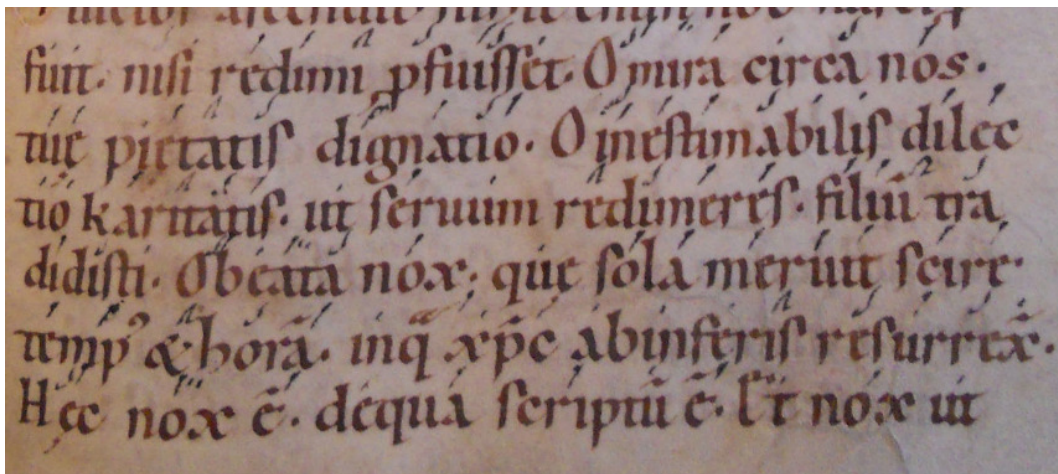 fuit· nisi redimi ꝓfuisset· O mira circa nos·
tuę pietatis dignatio· O inestimabilis dilec
tiō karitatis· ut seruum redimeres· filiū tra
didisti· O beata nox· quę sola meruit scire·
temp᷒ & horā· inq̄ xp̄c ab inferis resurrex̄·
Hęc nox ē· de qua scriptū ē· Et nox ut